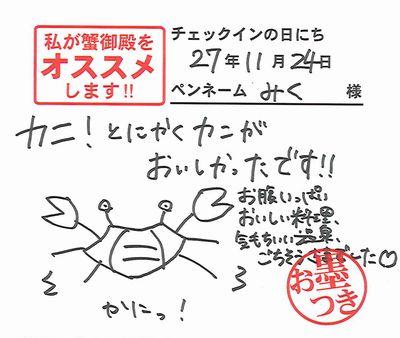 私が蟹御殿を
オススメ
します!!
チェックインの日にち
27年11月24日
ペンネーム みく 様
カニ!とにかくカニが
おいしかったです!!
お腹いっぱい
おいしい料理、
気もちいい温泉、
ごちそうさまでした
かにっ!
お墨
つき